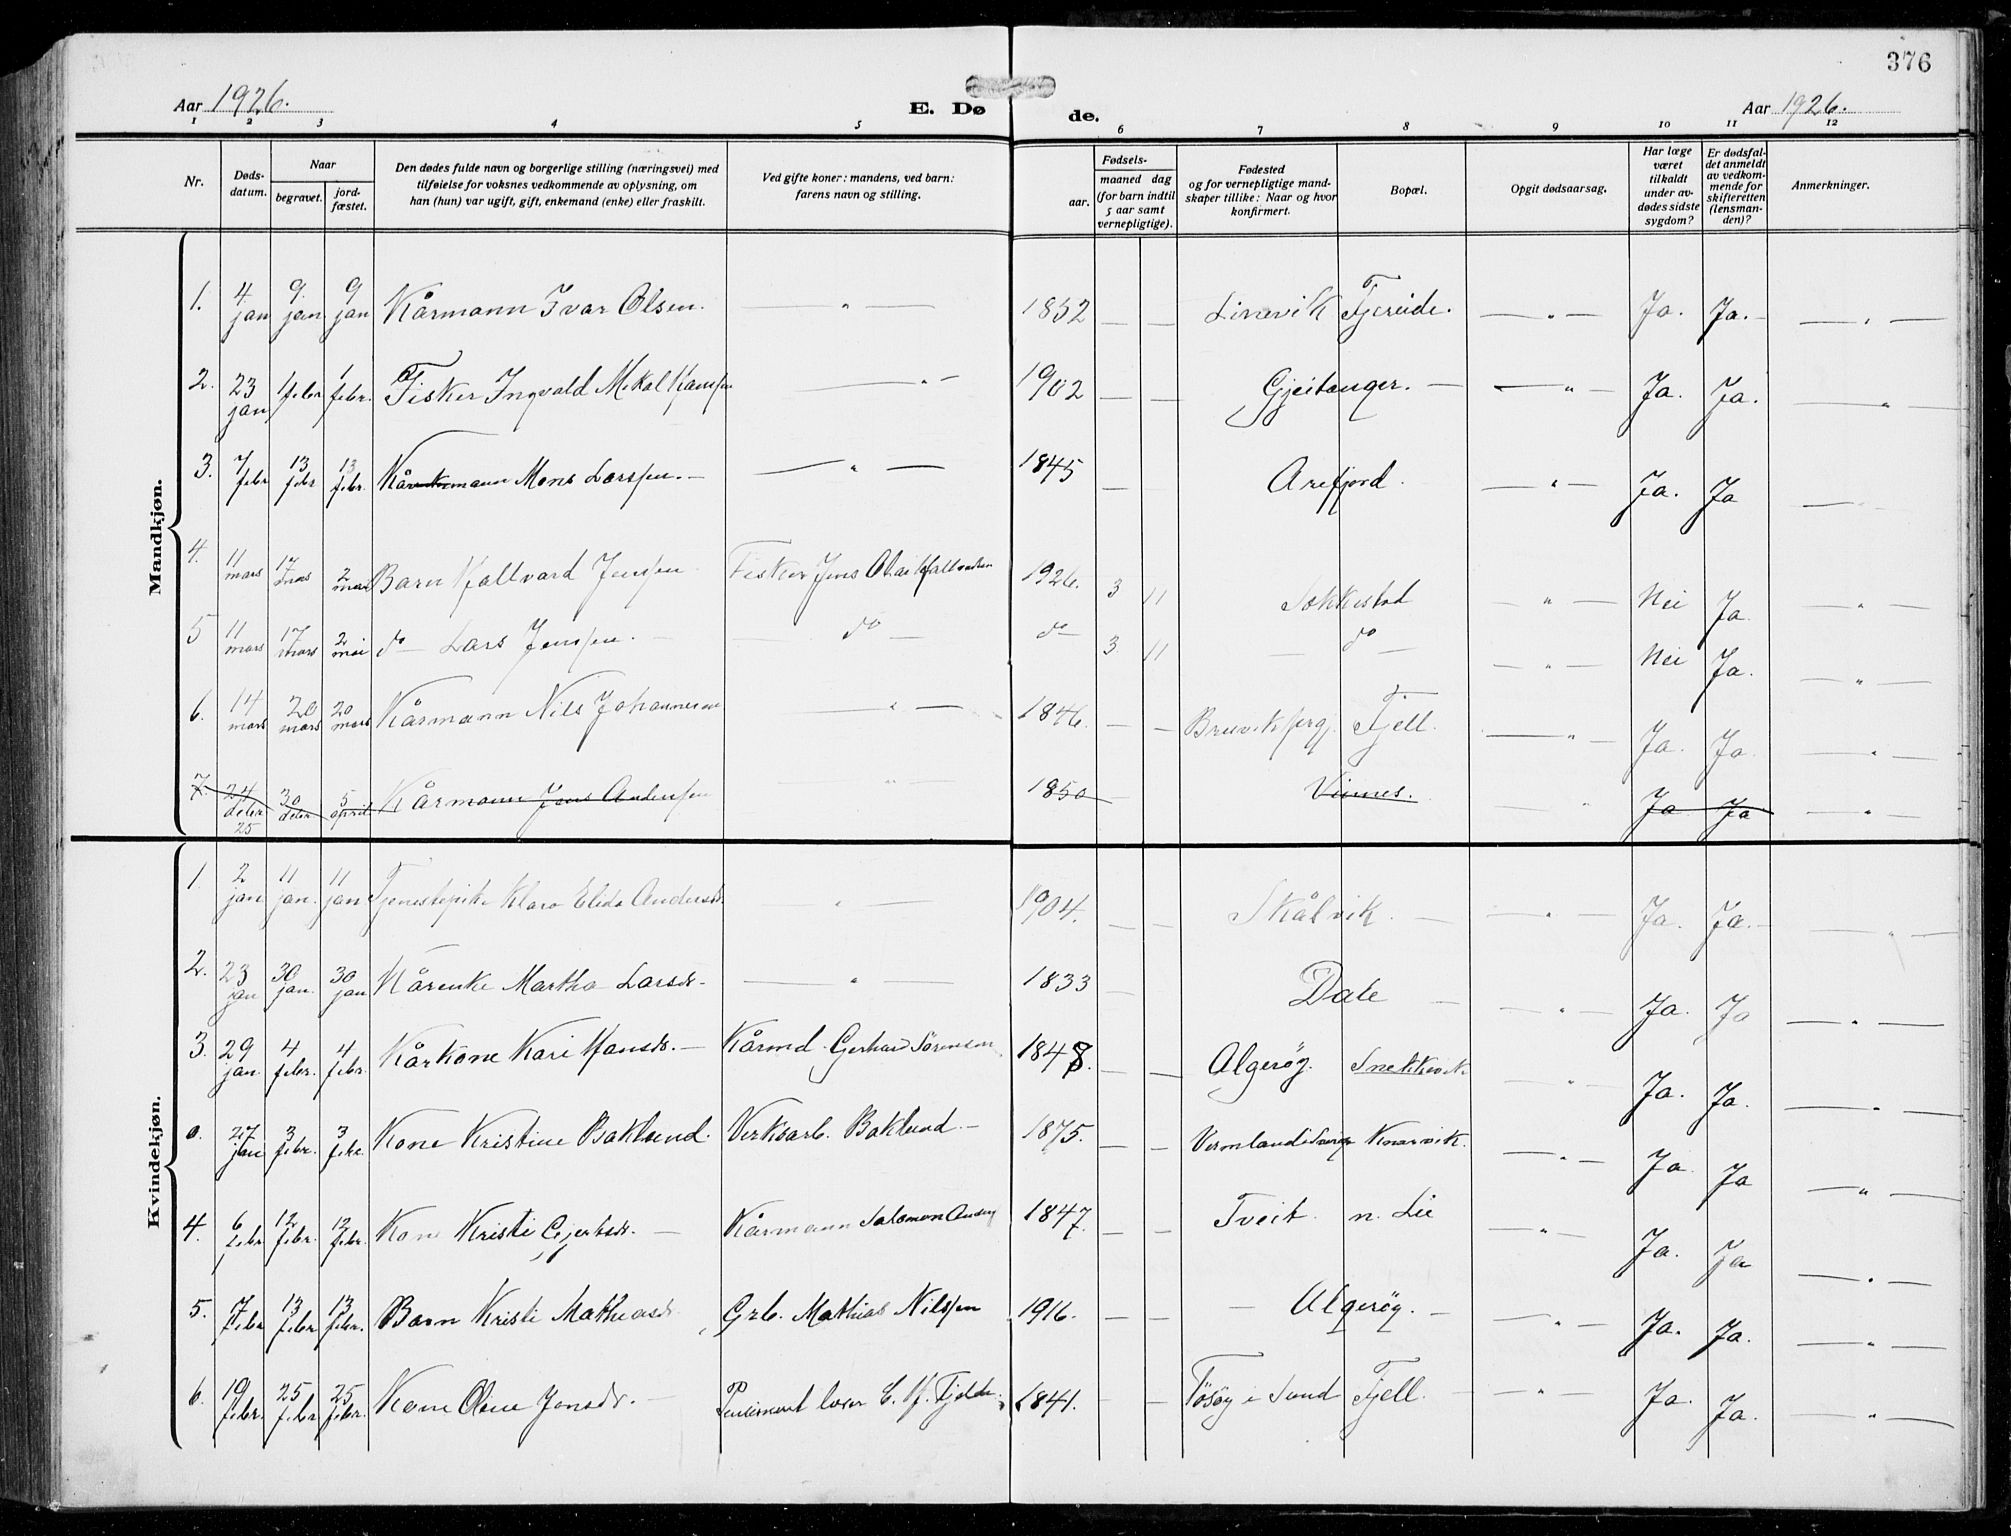 376
Aar 1926.
E. Døde.
Aar 1926.
1 2 3 4 5 6 7 8 9 10 11 12
Nr.
Døds-datum.
Naar
begravet.
jord-fæstet.
Den dødes fulde navn og borgerlige stilling (næringsvei) med tilføielse for voksnes vedkommende av oplysning, om han (hun) var ugift, gift, enkemand (enke) eller fraskilt.
Ved gifte koner: mandens, ved barn: farens navn og stilling.
Fødsels-
aar.
maaned dag
(for barn indtil 5 aar samt vernepligtige).
Fødested og for vernepligtige mand-skaper tillike: Naar og hvor konfirmert.
Bopæl.
Opgit dødsaarsag.
Har læge været tilkaldt under av-dødes sidste sygdom?
Er dødsfal-det anmeldt av vedkom-mende for skifteretten (lensman-den)?
Anmerkninger.
Mandkjøn.
1. 4 jan 9 jan 9 jan Kårmann Ivar Olsen. — " — 1852 — — Linevik Fjereide. — " — Ja. Ja. — — " —
2. 23 jan 1 febr 1 febr. Fisker Ingvald Mikal Hansen — " — 1902 — — Gjeitanger. — — " — Ja. Ja. — " —
3. 7 febr 13 febr 13 febr. Kårmann Mons Larssen. — — " — 1845 — Arefjord. — " — Ja. Ja — " —
4. 11 mars 17 mars 2 mai Barn Hallvard Jenssen Fisker Jens Olai Hallvardsen 1926. 3 11 Sekkestad — " — Nei Ja. — " —
5 11 mars 17 mars 2 mai do — Lars Jenssen. — — do — do 3 11 — do — — " — Nei Ja. — " —
6. 14 mars 20 mars 20 mars Kårmann Nils Johannessen — " — 1846. — — Fjell. — " — Ja. Ja. — " —
7. 24 deber 25 30 deber 5 april Kårmann Jens Anderssen — " — 1850 — Vinnes. " Ja Ja — " —
Kvindekjøn.
1. 2 jan 11 jan. 11 jan Tjenestepike Klara Elida Andersdr. — " — 1904. — — Skålvik. — — " — Ja. Ja. — — " —
2. 23 jan 30 jan. 30 jan Kårenke Martha Larsdr. — " — 1833 — Dale — — " — Ja. Ja — " —
3. 29 jan. 4 febr. 4 febr. Kårkone Kari Hansdr. — Kårmd. Gerhard Sörensen 1848. — — Algerøy. Snekkevik. — " — Ja. Ja. — " —
0. 27 jan 3 febr. 3 febr. Kone Kristine Baklund. Verksarb. Baklund. — 1875. — — Vermland i Sverige Knarvik. — " — Ja. Ja — " —
4. 6 febr 12 febr. 12 febr. Kone Kristi Gjertsdr. — Kårmann Salomon 1847. — — Tveit n. Lie — " — Ja. Ja — " —
5. 7 febr 13 febr 13 febr. Barn Kristi Mathiasdr. Grb. Mathias Nilssen 1916. — — — Algerøy. — — " — Ja. Ja. — " —
6. 19 febr. 25 febr 25 febr. Kone Oline Jonsdr. — Pensionert lærer C. H. Fjelde. 1841. — — Tösöy i Sund Fjell. — — " — Ja. Ja. — " —